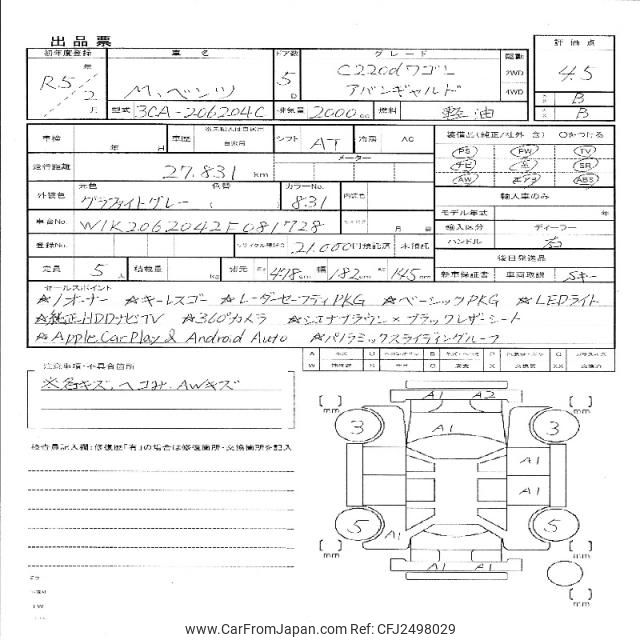 出品票
初年度登録 車名 ドア数 グレード 駆動 評価点
R.5 年 2 月
M、ベンツ 5 D C220dワゴン アバンギャルド 2WD 4WD 4.5
B
型式 3CA-206204C 排気量 2000 cc 燃料 軽油 B
車検 年 月 車歴 シフト AT 冷房 AC 装備品(純正/社外 含) ○をつける
走行距離 27.831 km メーター
PS PW TV
SR
AW ABS
外装色 元色 グラファイトグレー 色替 カラーNo. 831 内装色
輸入車のみ
モデル年式 年
車台No. W1K2062042F081728 月 日
輸入区分 ディーラー
登録No. リサイクル預託金 21.000 円預託済 未預託
ハンドル 右
後日発送品
定員 5 人 積載量 kg 諸元 長さ 478 cm 幅 182 cm 高 145 cm
新車保証書 車両取説 Sキー
セールスポイント
☆1オーナー ☆キーレスゴー ☆レーダーセーフティPKG ☆ベーシックPKG ☆LEDライト
☆純正HDDナビTV ☆360°カメラ ☆シエナブラウン×ブラックレザーシート
☆Apple CarPlay & Android Auto ☆パノラミックスライディングルーフ
注意事項・不具合箇所
※各キズ、ヘコみ.AWキズ
検査員記入欄:修復歴「有」の場合は修復箇所・交換箇所を記入
A U B P C
W S X XX
[ ] mm A1 A2 [ ] mm
3 A1 3
A1
A1
5 A1 5
[ ] mm A1 A1 [ ] mm
[ ] mm
www.CarFromJapan.com © CFJ2498029